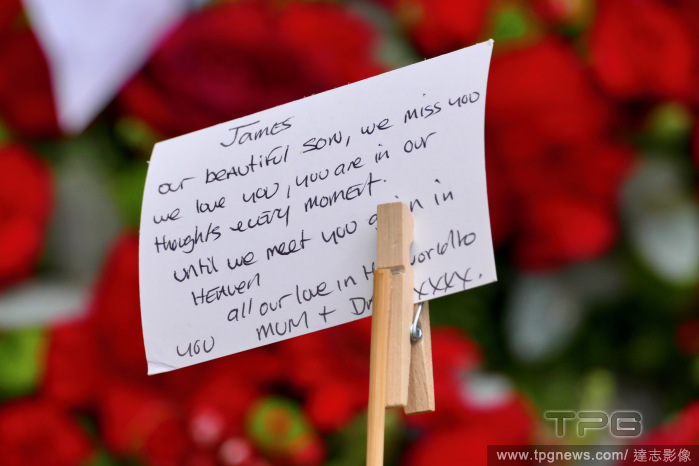 James
our beautiful son, we miss you
we love you, you are in our
thoughts every moment.
until we meet you in in
Heaven
all our love in the world to
you MUM + D xxxx.
TPG
www.tpgnews.com/ 達志影像